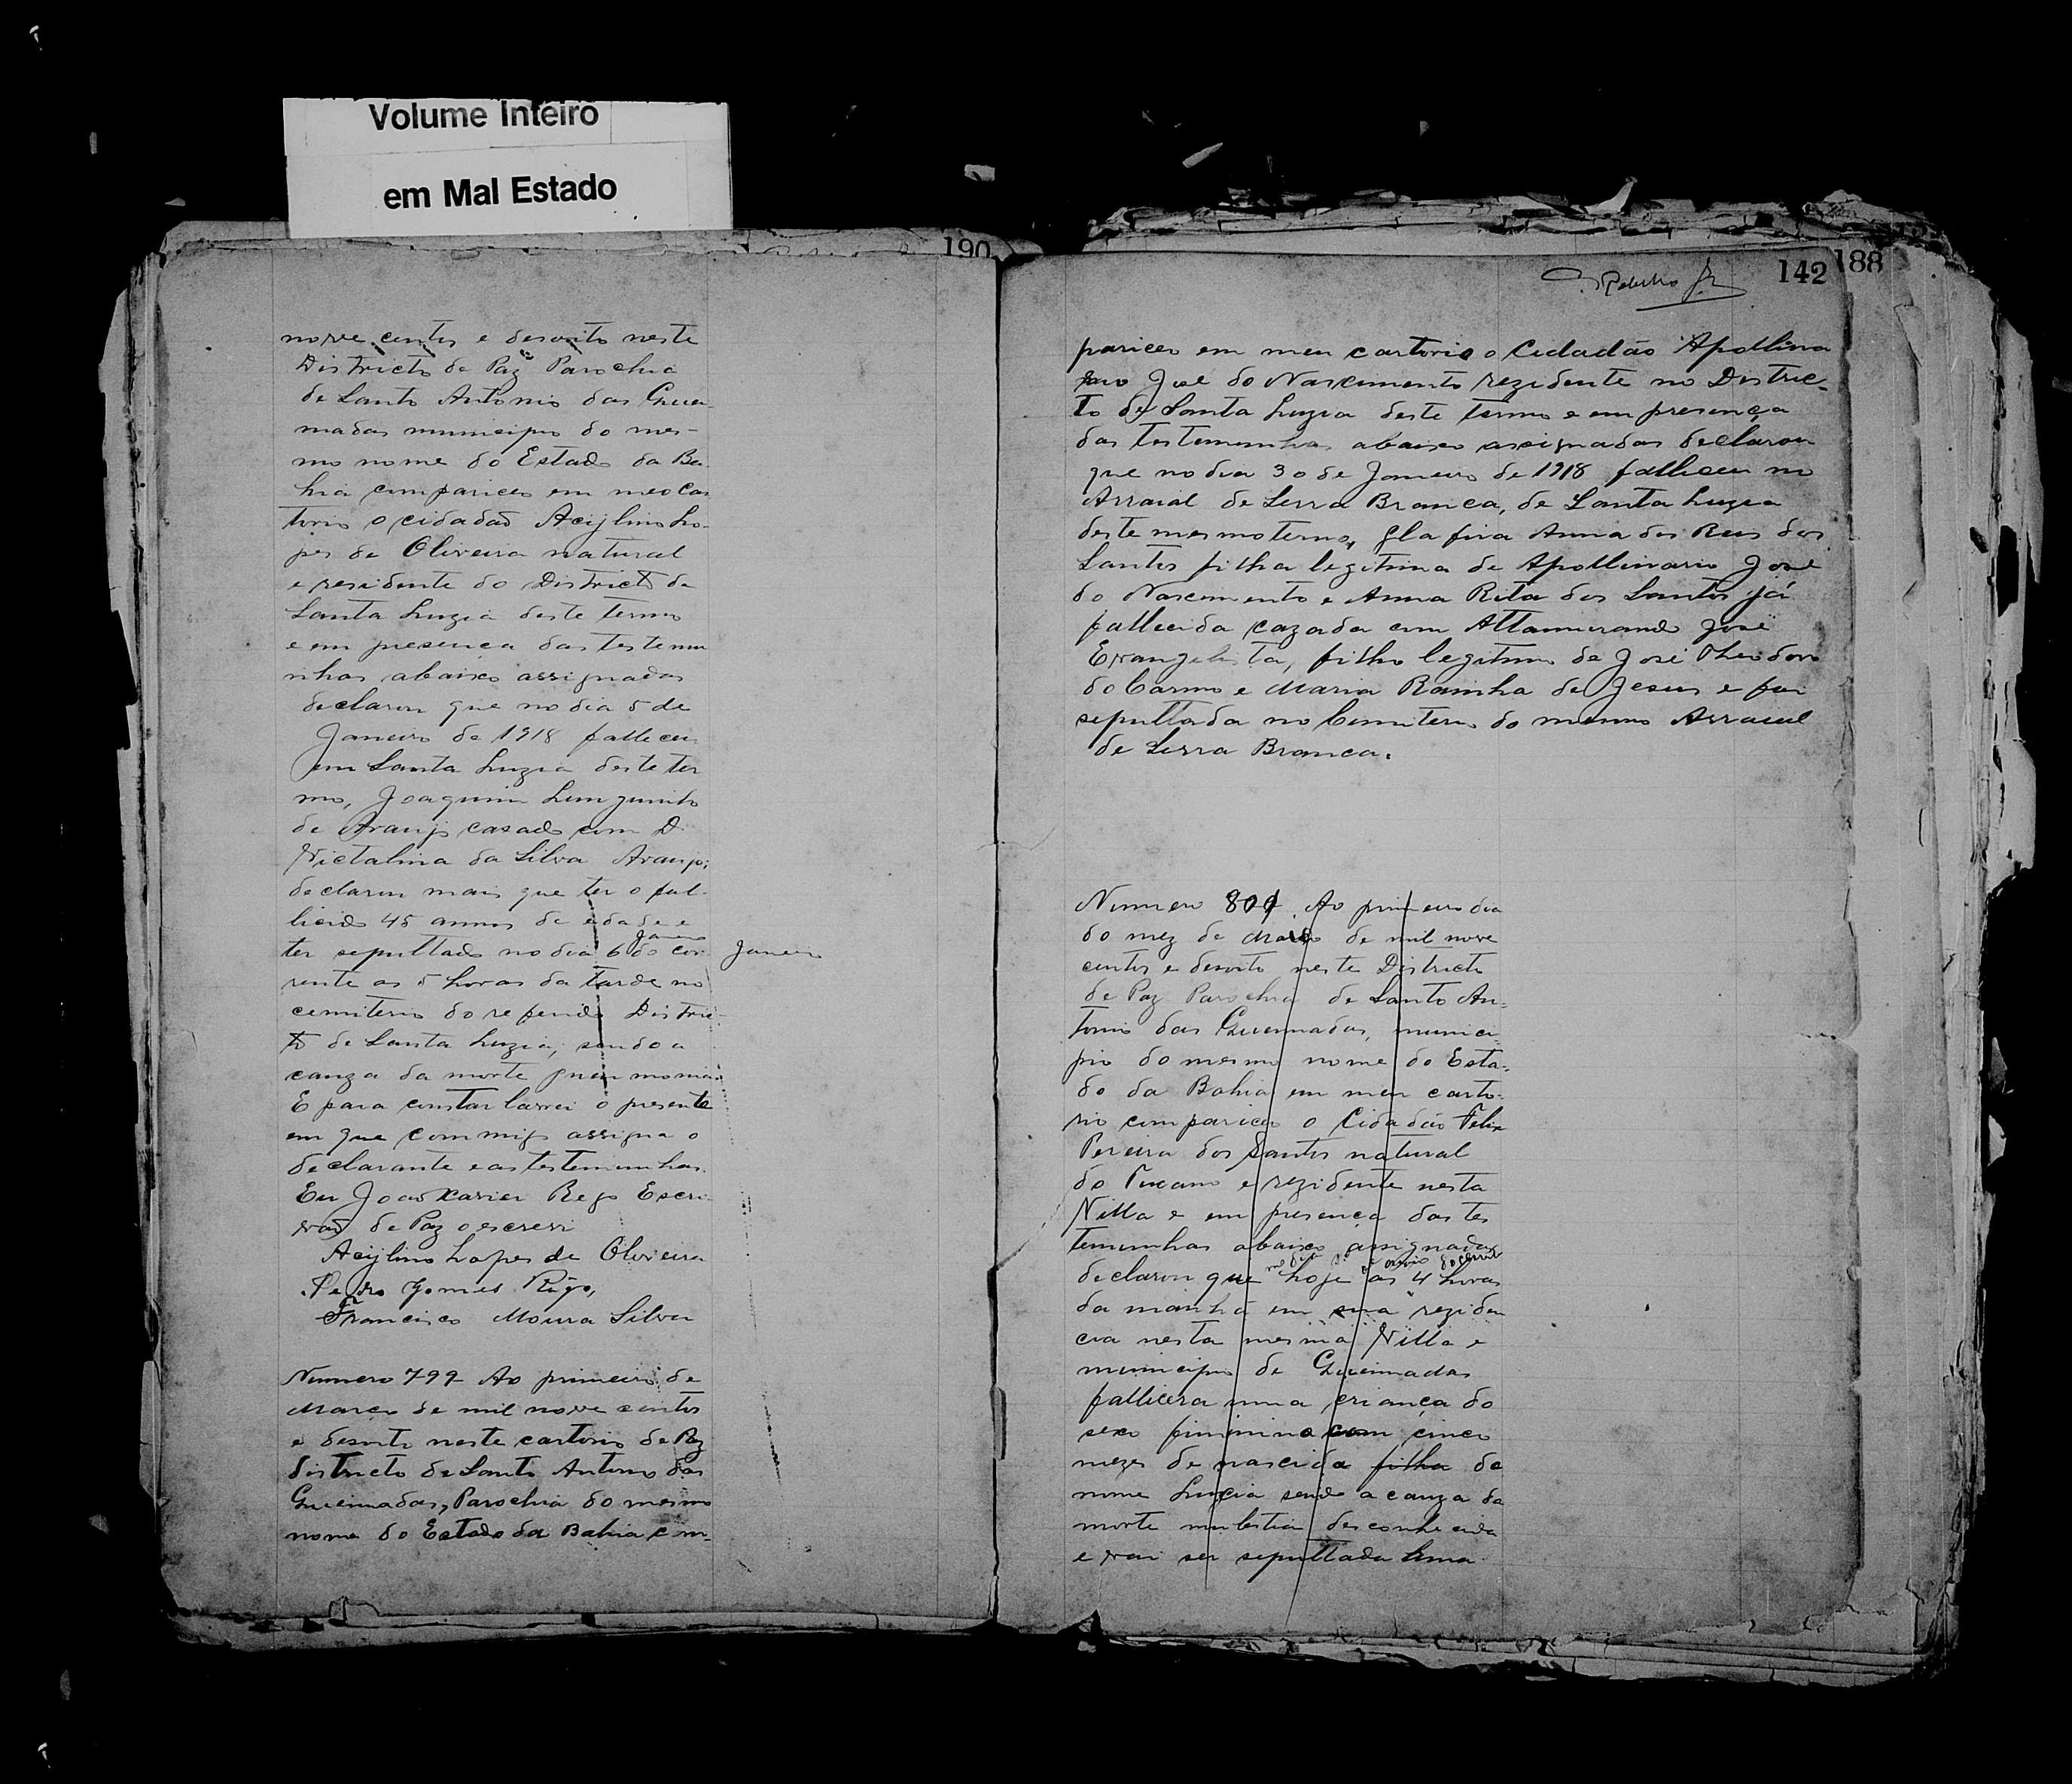 Volume Inteiro
em Mal Estado
190
nove centos e desoito neste
Districto de Paz Parochia
de Santo Antonio das Quei-
madas municipio do mes-
mo nome do Estado da Ba-
hia compareceo em meo Car
torio o cidadão Acijlino Lo-
pes de Oliveira natural
e residente do Districto de
Santa Luzia deste termo
e em presença das testemu
nhas abaixo assignadas
declarou que no dia 5 de
Janeiro de 1918 falleceu
em Santa Luzia deste ter
mo, Joaquim
de Araujo casado com D.
Victalina da Silva Araujo;
declarou mais que ter o fal-
licido 45 annos de edade e
Janeiro
ter sepultado no dia 6 do cor Janeiro
rente as 5 horas da tarde no
cemiterio do referido Distric-
to de Santa Luzia, sendo a
cauza da morte pneumonia.
E para constar lavrei o presente
em que commigo assigna o
declarante e as testemunhas.
Eu João Xavier Rego Escri-
vão de Paz o escrevi
Acijlino Lopes de Oliveira
Pedro Gomes Rêgo,
Francisco Moura Silva
Numero 799 Ao primeiro de
Março de mil nove centos
e desoito neste cartorio de Paz
districto de Santo Antonio das
Queimadas, Parochia do mesmo
nome do Estado da Bahia com-
142
188
pariceo em meu cartorio o Cidadão Apollina
rio José do Nascimento rezidente no Distric-
to de Santa Luzia deste termo e em presença
das testemunhas abaixo assignadas declarou
que no dia 30 de Janeiro de 1918 falliceu no
Arraial de Serra Branca, de Santa Luzia
deste mesmo termo, Glafira Anna dos Reis dos
Santos filha legitima de Apollinario José
do Nascimento e Anna Rita dos Santos já
fallecida cazada com Altamirando José
Evangelista, filho legitimo de José Theodoro
do Carmo e Maria Rainha de Jesus e foi
sepultada no Cemiterio do mesmo Arraial
de Serra Branca.
Numero 800. Ao primeiro dia
do mez de Março de mil nove
centos e desoito neste Districto
de Paz Parochia de Santo An-
tonio das Queimadas, munici-
pio do mesmo nome do Esta-
do da Bahia em meu carto-
rio compariceo o Cidadão Felix
Pereira dos Santos natural
do Tucano e rezidente nesta
Villa e em presença das tes
temunhas abaixo assignadas
declarou que hoje as 4 horas
da manhã em sua reziden
cia nesta mesma Villa e
municipio de Queimadas
fallicera uma criança do
sexo fiminino com cinco
mezes de nascida filha de
nome Luzia sendo a cauza da
morte molestia desconhecida
e vai ser sepultada